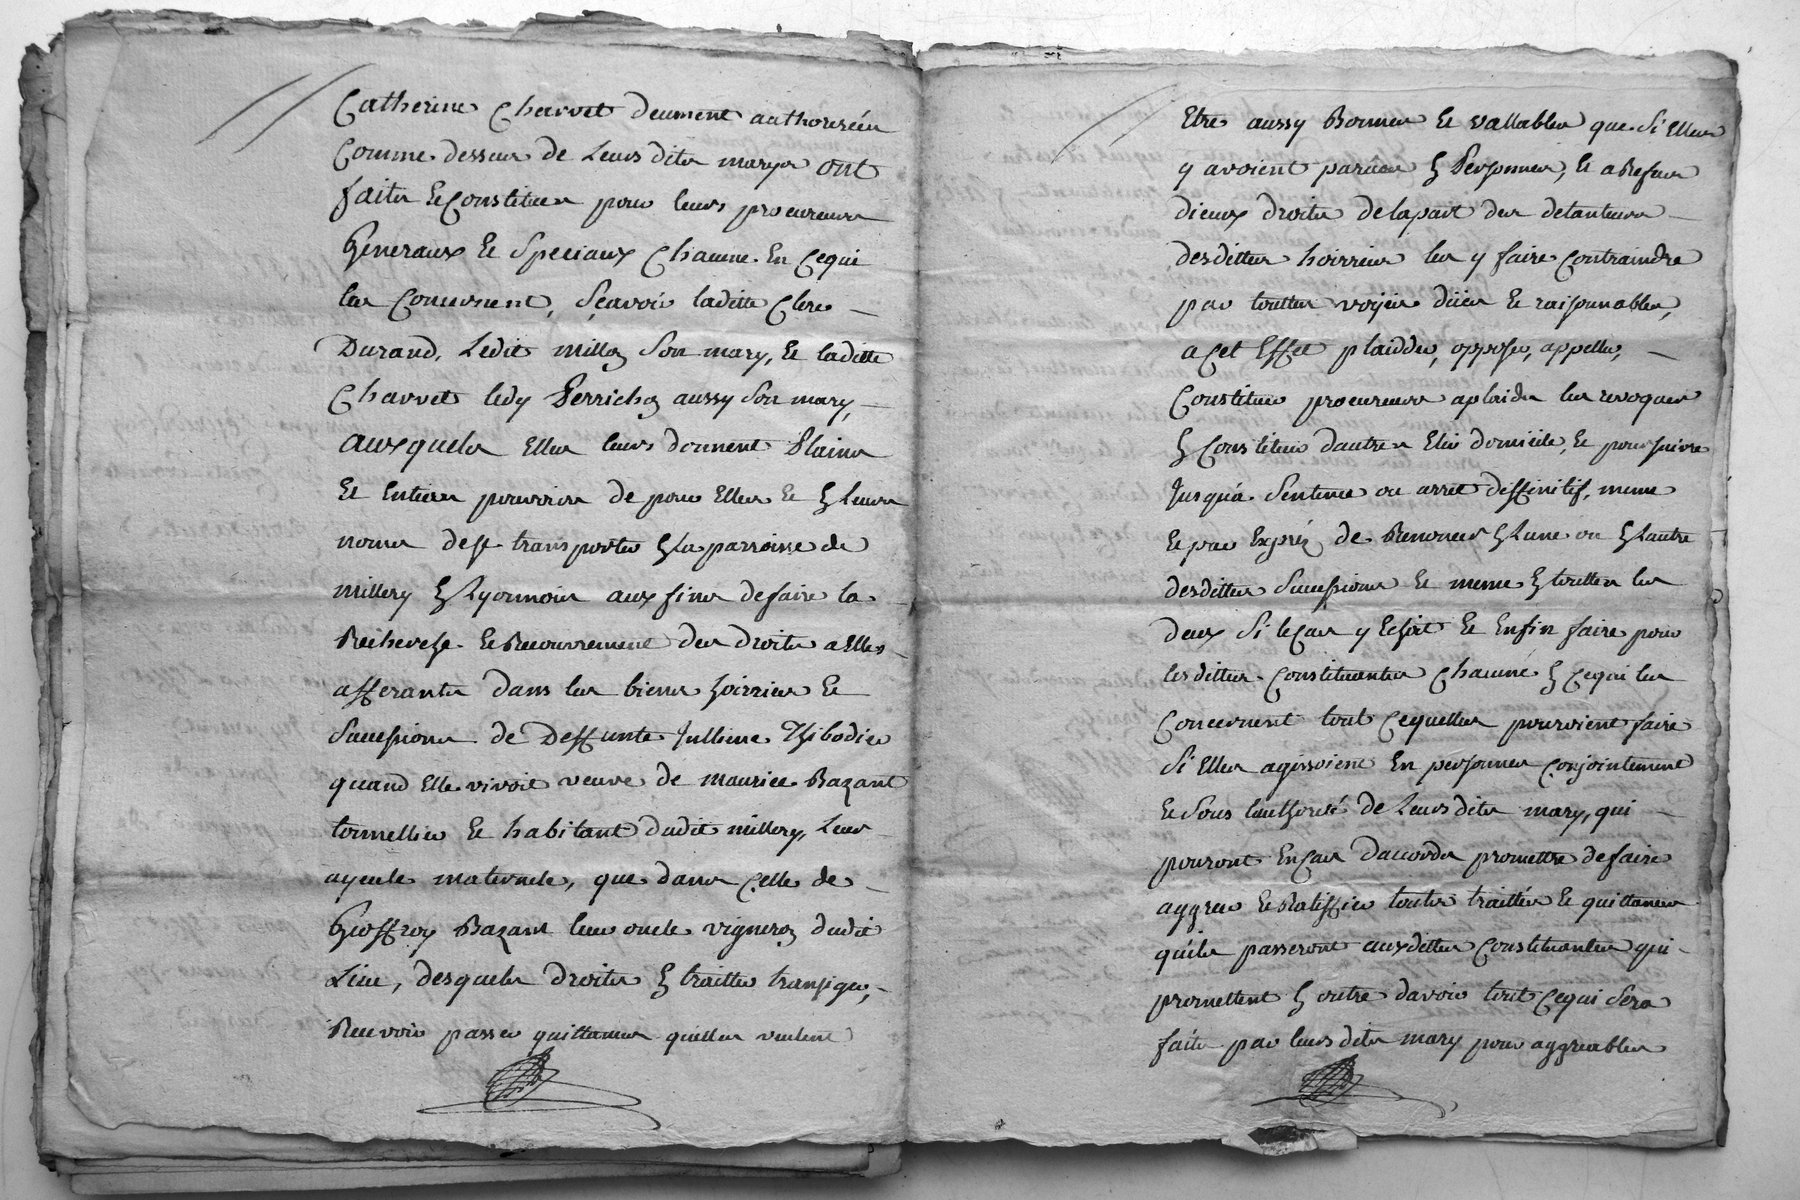 Catherine Charvet deument authoriséés
Comme dessus de Leurs dits marys ont
faits et Constitués pour leurs procureurs
Generaux et Speciaux Chacune En Cequi
les Concernent, Sçavoir laditte Clere
Durand, Ledit Millon Son mary, Et laditte
Charvet ledy Perrichon aussy Son mary,
auxquels Elles leurs donnent Plains
Et Entiers pouvoirs de pour Elles Et En Leurs
noms de se transporter En La parroisse de
millery En Lyonnois aux fins de faire la
Recherche et Recouvrement des droits a Elles
afferants dans les biens hoirries Et
Successions de Deffunte Jullienne Thibodier
quand Elle vivoit veuve de Maurice Bazant
tonnellier Et habitant dudit millery, Leur
ayeule maternele, que dans Celle de
Geoffroy Bazant leur oncle vigneron dudit
Lieu, desquels droits En traitter transiger,
Recevoir passer quittances quelles veulent
Etre aussy Bonnes Et vallables que Si Elles
y avoient parües En Personnes, Et a Refus
dieux droits de la part des detanteurs
desdittes hoirries les y faire Contraindre
par touttes voyës düës Et raisonnables,
a Cet Effet plaidder, opposer, appeller,
Constituer procureurs a plaider les revoquer
En Constituer dautres Elir domicile, Et poursuivre
Jusquá Sentence ou arret deffinitif, meme
Et par Exprés de Renoncer En Lune ou En Lautre
desdittes Successions Et meme En touttes les
deux Si le Cas y Echoit Et Enfin faire pour
lesdittes Constituantes Chacune En Cequi les
Concernent tout Cequelles pouroient faire
Si Elles agissoient En personnes Conjointement
Et Sous lauthorité de Leurs dits mary, qui
pouront En Cas daccords promettre de faire
aggreer Et Ratiffier touts traittés Et quittances
quils passeront auxdittes Constituantes qui
promettent En outre davoir tout Cequi Sera
faite par leurs dits mary pour aggreables